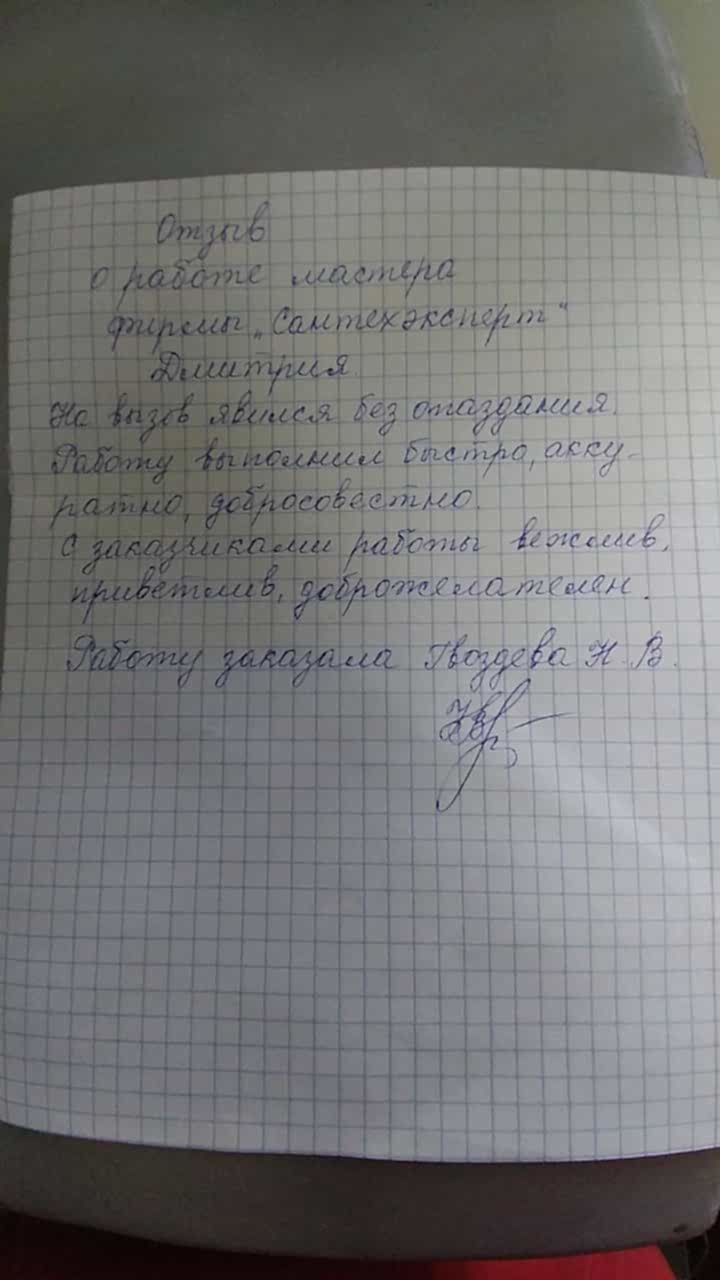 Отзыв
о работе мастера
фирмы „Сантехэксперт"
Дмитрия
На вызов явился без опаздания.
Работу выполнил быстро, акку-
ратно, добросовестно.
С заказчиками работы вежлив,
приветлив, доброжелателен.
Работу заказала Гвоздева Н. В.